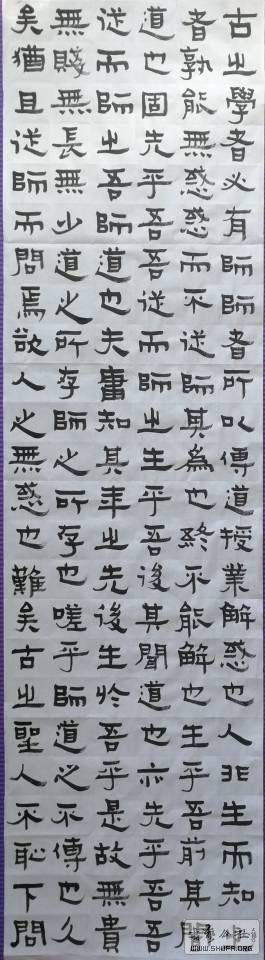 古之學者必有師師者所以傳道授業解惑也人非生而知
者孰能無惑惑而不從師其為也終不能解也生乎吾前其聞
道也固先乎吾吾從而師之生乎吾後其聞道也亦先乎吾吾
從而師之吾師道也夫庸知其年之先後生於吾乎是故無貴
無賤無長無少道之所存師之所存也嗟乎師道之不傳也久
矣猶且從師而問焉欲人之無惑也難矣古之聖人不恥下問